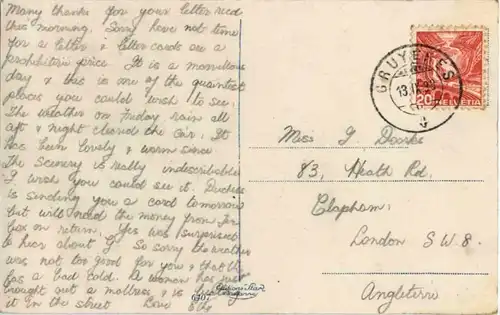 Many thanks for your letter recd
this morning. Sorry have not time
for a letter & letter cards are a
prohibitive price. It is a marvellous
day & this is one of the quaintest
places you could wish to see.
The weather on Friday rain all
aft & night cleared the air. It
has been lovely & warm since
The scenery is really indescribable
I wish you could see it. Duchess
is sending you a card tomorrow
but will need the money from
box on return. Yes was surprised
to hear about G So sorry the weather
was not too good for you & that
has a bad cold. A woman has just
brought out a mattress & is beating
it in the street Love
Miss G
83, Heath Rd.
Clapham.
London S.W.8.
Angleterre
GRUYÈRES
13.IX
20 HELVETIA
6407